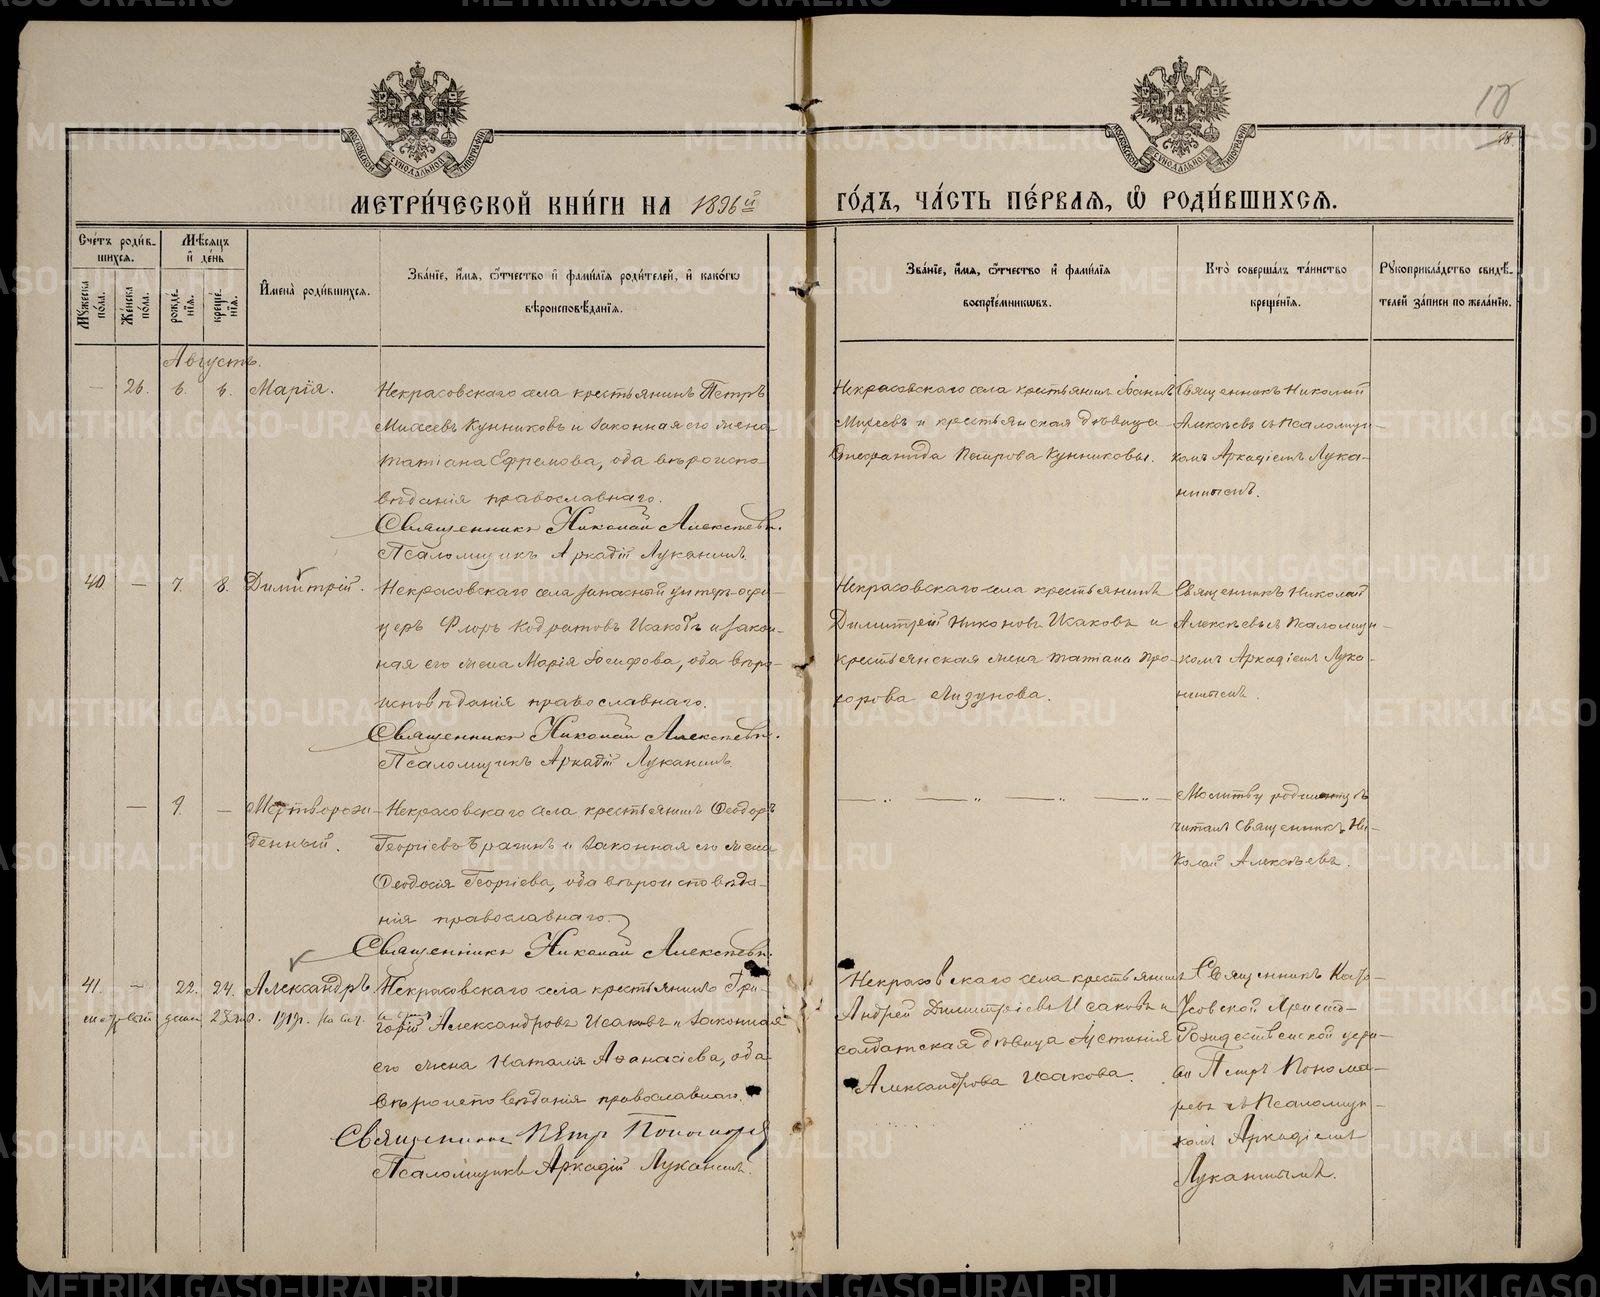 18
18
МЕТРИ́ЧЕСКОЙ КНИ́ГИ НА 1896й
ГО́ДЪ, ЧА́СТЬ ПЕ́РВАЯ, Ѡ РОДИ́ВШИХСЯ.
Сче́тъ роди́вшихся.
Му́жеска по́ла.
Же́нска по́ла.
Мѣ́сяцъ и де́нь
рожде́нія.
креще́нія.
Имена̀ роди́вшихся.
Зва́ніе, и́мя, о́тчество и фами́лія роди́телей, и како́гѡ
вѣроисповѣ́данія.
Зва́ніе, и́мя, о́тчество и фами́лія
воспріе́мникѡвъ.
Кто̀ соверша́лъ та́инство
креще́нія.
Рукоприкла́дство свидѣ́-
телей за́писи по жела́нію.
Августъ.
— 26. 6. 6. Марія.
Некрасовскаго села крестьянинъ Петръ
Михеевъ Кунниковъ и законная его жена
Татіана Ефремова, оба вѣроиспо-
вѣданія православнаго.
Священникъ Николай Алексѣевъ.
Псаломщикъ Аркадій Луканинъ.
Некрасовскаго села крестьянинъ Іоаннъ
Михеевъ и крестьянская дѣвица
Епифанида Петрова Кунниковы.
Священникъ Николай
Алексѣевъ съ псаломщи-
комъ Аркадіемъ Лука-
нинымъ.
40 — 7. 8. Димитрій.
Некрасовскаго села запасный унтеръ-офи-
церъ Флоръ Кодратовъ Исаковъ и закон-
ная его жена Марія Іосифова, оба вѣро-
исповѣданія православнаго.
Священникъ Николай Алексѣевъ.
Псаломщикъ Аркадій Луканинъ.
Некрасовскаго села крестьянинъ
Димитрій Никоновъ Исаковъ и
крестьянская жена Татіана Про-
хорова Лизунова.
Священникъ Николай
Алексѣевъ съ псаломщи-
комъ Аркадіемъ Лука-
нинымъ.
— 9. — Мертворож-
денный.
Некрасовскаго села крестьянинъ Ѳеодоръ
Георгіевъ Брагинъ и законная его жена
Ѳеодосія Георгіева, оба вѣроисповѣда-
нія православнаго.
Священникъ Николай Алексѣевъ.
— „ — „ — „ — „ —
Молитву родильницѣ
читалъ Священникъ Ни-
колай Алексѣевъ.
41. — 22. 24. Александръ
28 янв. 1919г.
Некрасовскаго села крестьянинъ Гри-
горій Александровъ Исаковъ и законная
его жена Наталія Аѳанасіева, оба
вѣроисповѣданія православнаго.
Священникъ Петръ Пономаревъ
Псаломщикъ Аркадій Луканинъ.
Некрасовскаго села крестьянинъ
Андрей Димитріевъ Исаковъ и
солдатская дѣвица Іустинія
Александрова Исакова.
Священникъ
Христо-
Рождественской церк-
ви Петръ Понома-
ревъ съ псаломщи-
комъ Аркадіемъ
Луканинымъ.